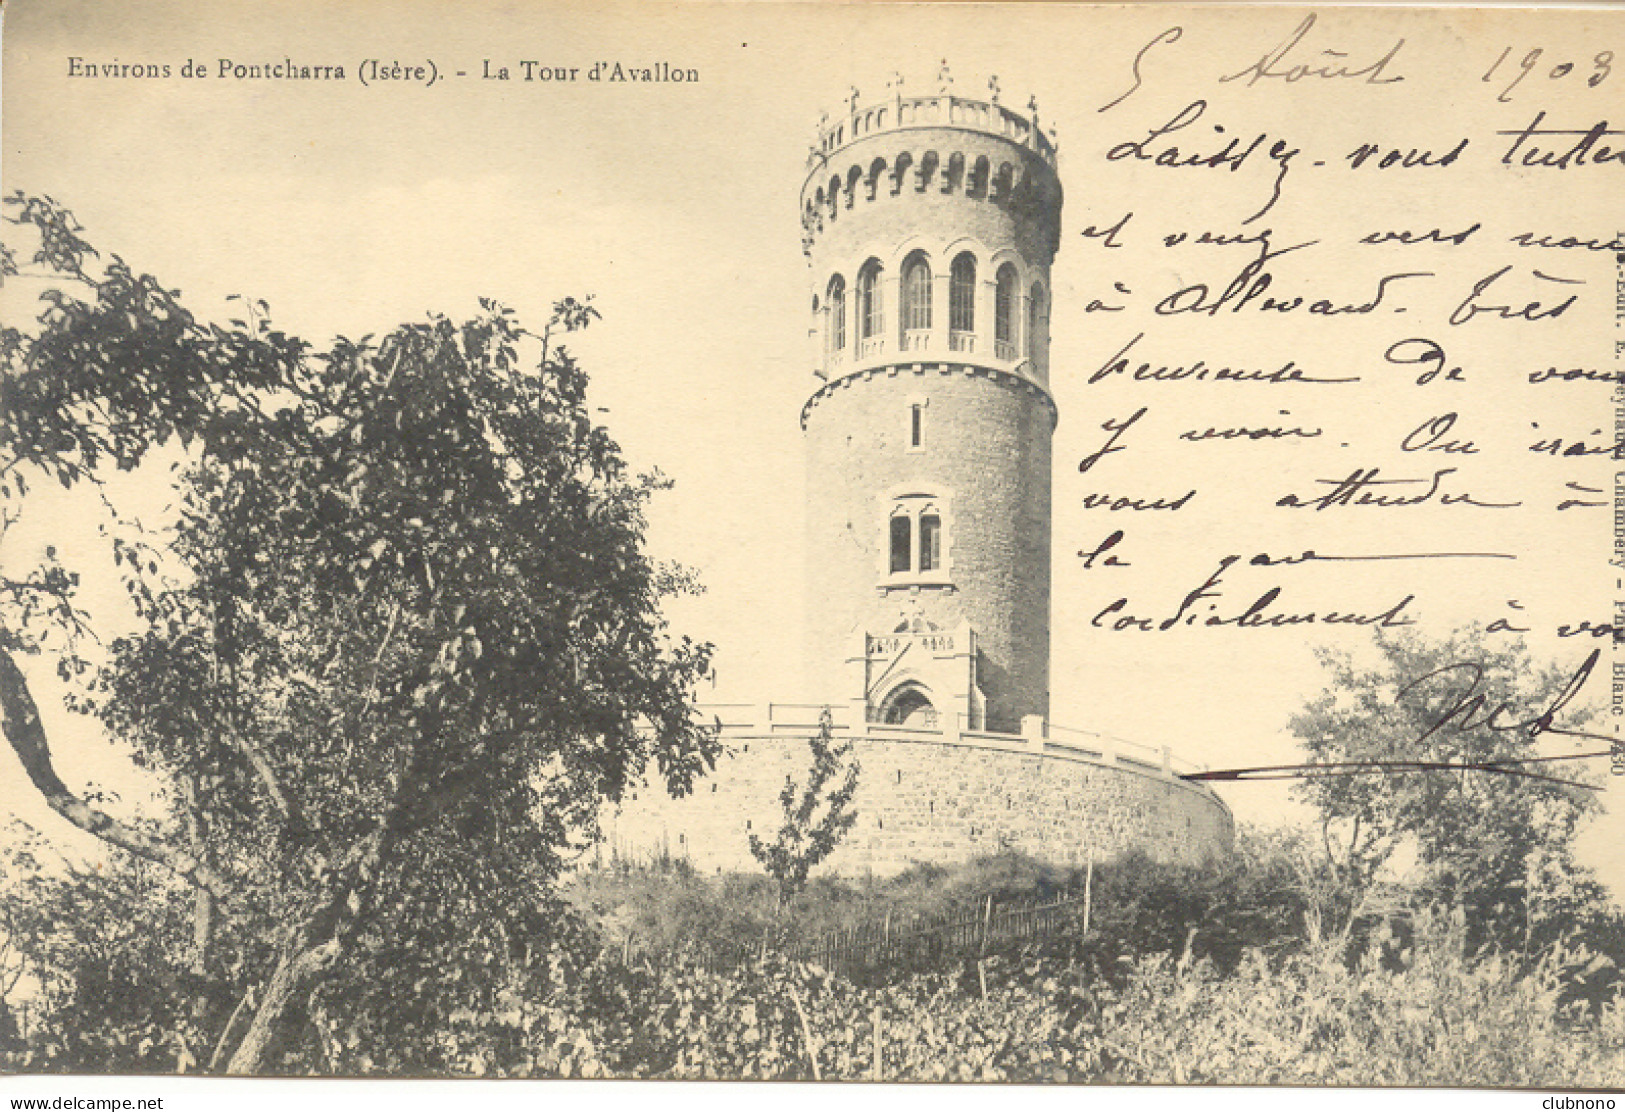 Environs de Pontcharra (Isère). - La Tour d'Avallon
5 Août 1903
Laissez-vous tenter
et venez vers nous
à Allevard. Très
heureuse de vous
y revoir. On irait
vous attendre à
la gare
cordialement à vous
E. Reynaud, Chambéry - Phot. Blanc
delcampe.net
clubnono